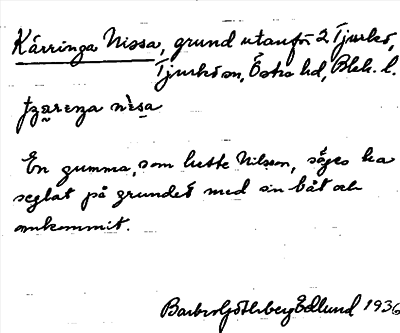 Kärringa Nissa, grund utanför 2 Tjurkö,
Tjurkö sn, Östra hd, Blek. l.
En gumma, som hette Nilsson, säges ha
seglat på grundet med sin båt och
omkommit.
Barbro Götherberg Edlund 1936